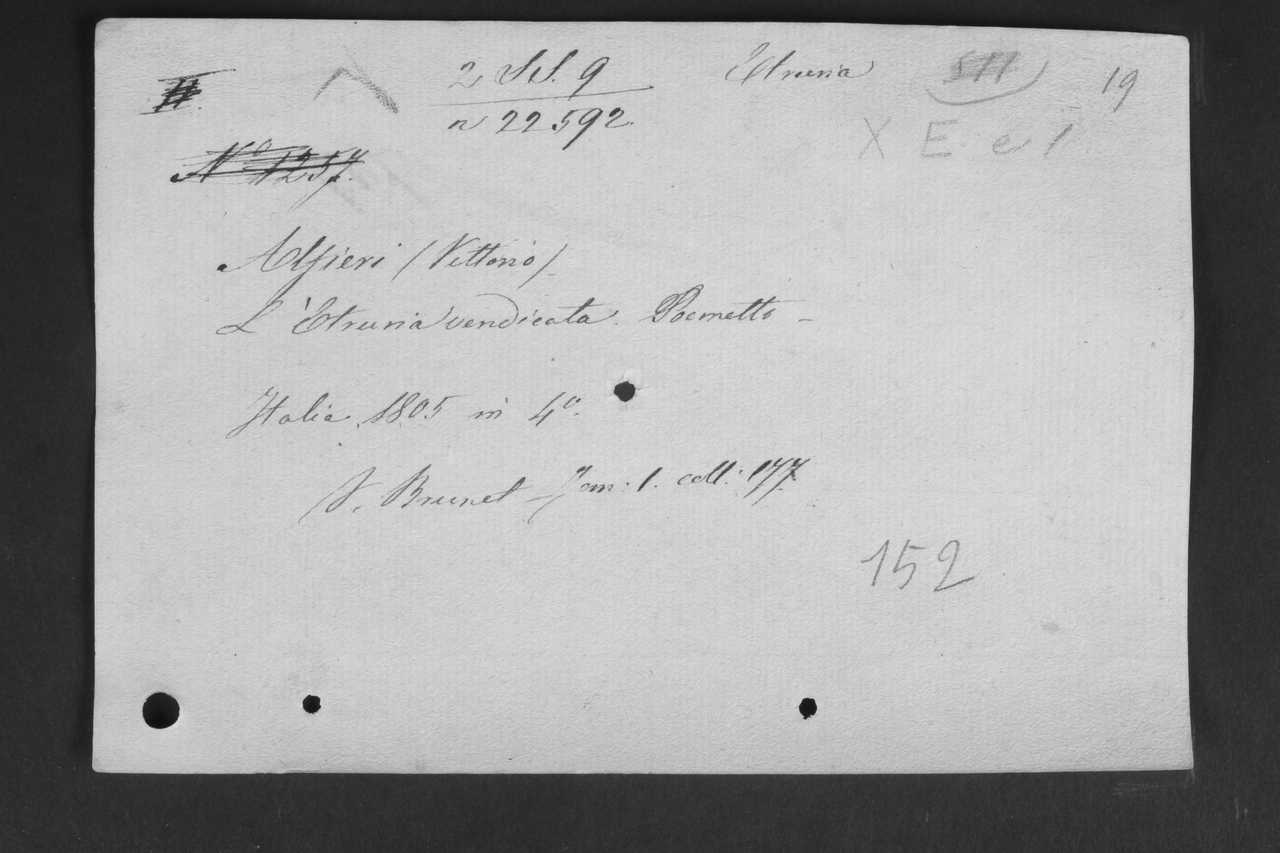 2 SS. 9 Etruria 19
n 22592
X E e 1
N.º 1257.
Alfieri (Vittorio)
L'Etruria vendicata. Poemetto -
Italia 1805 in 4.º
V. Brunet - Tom: 1. coll: 177.
152